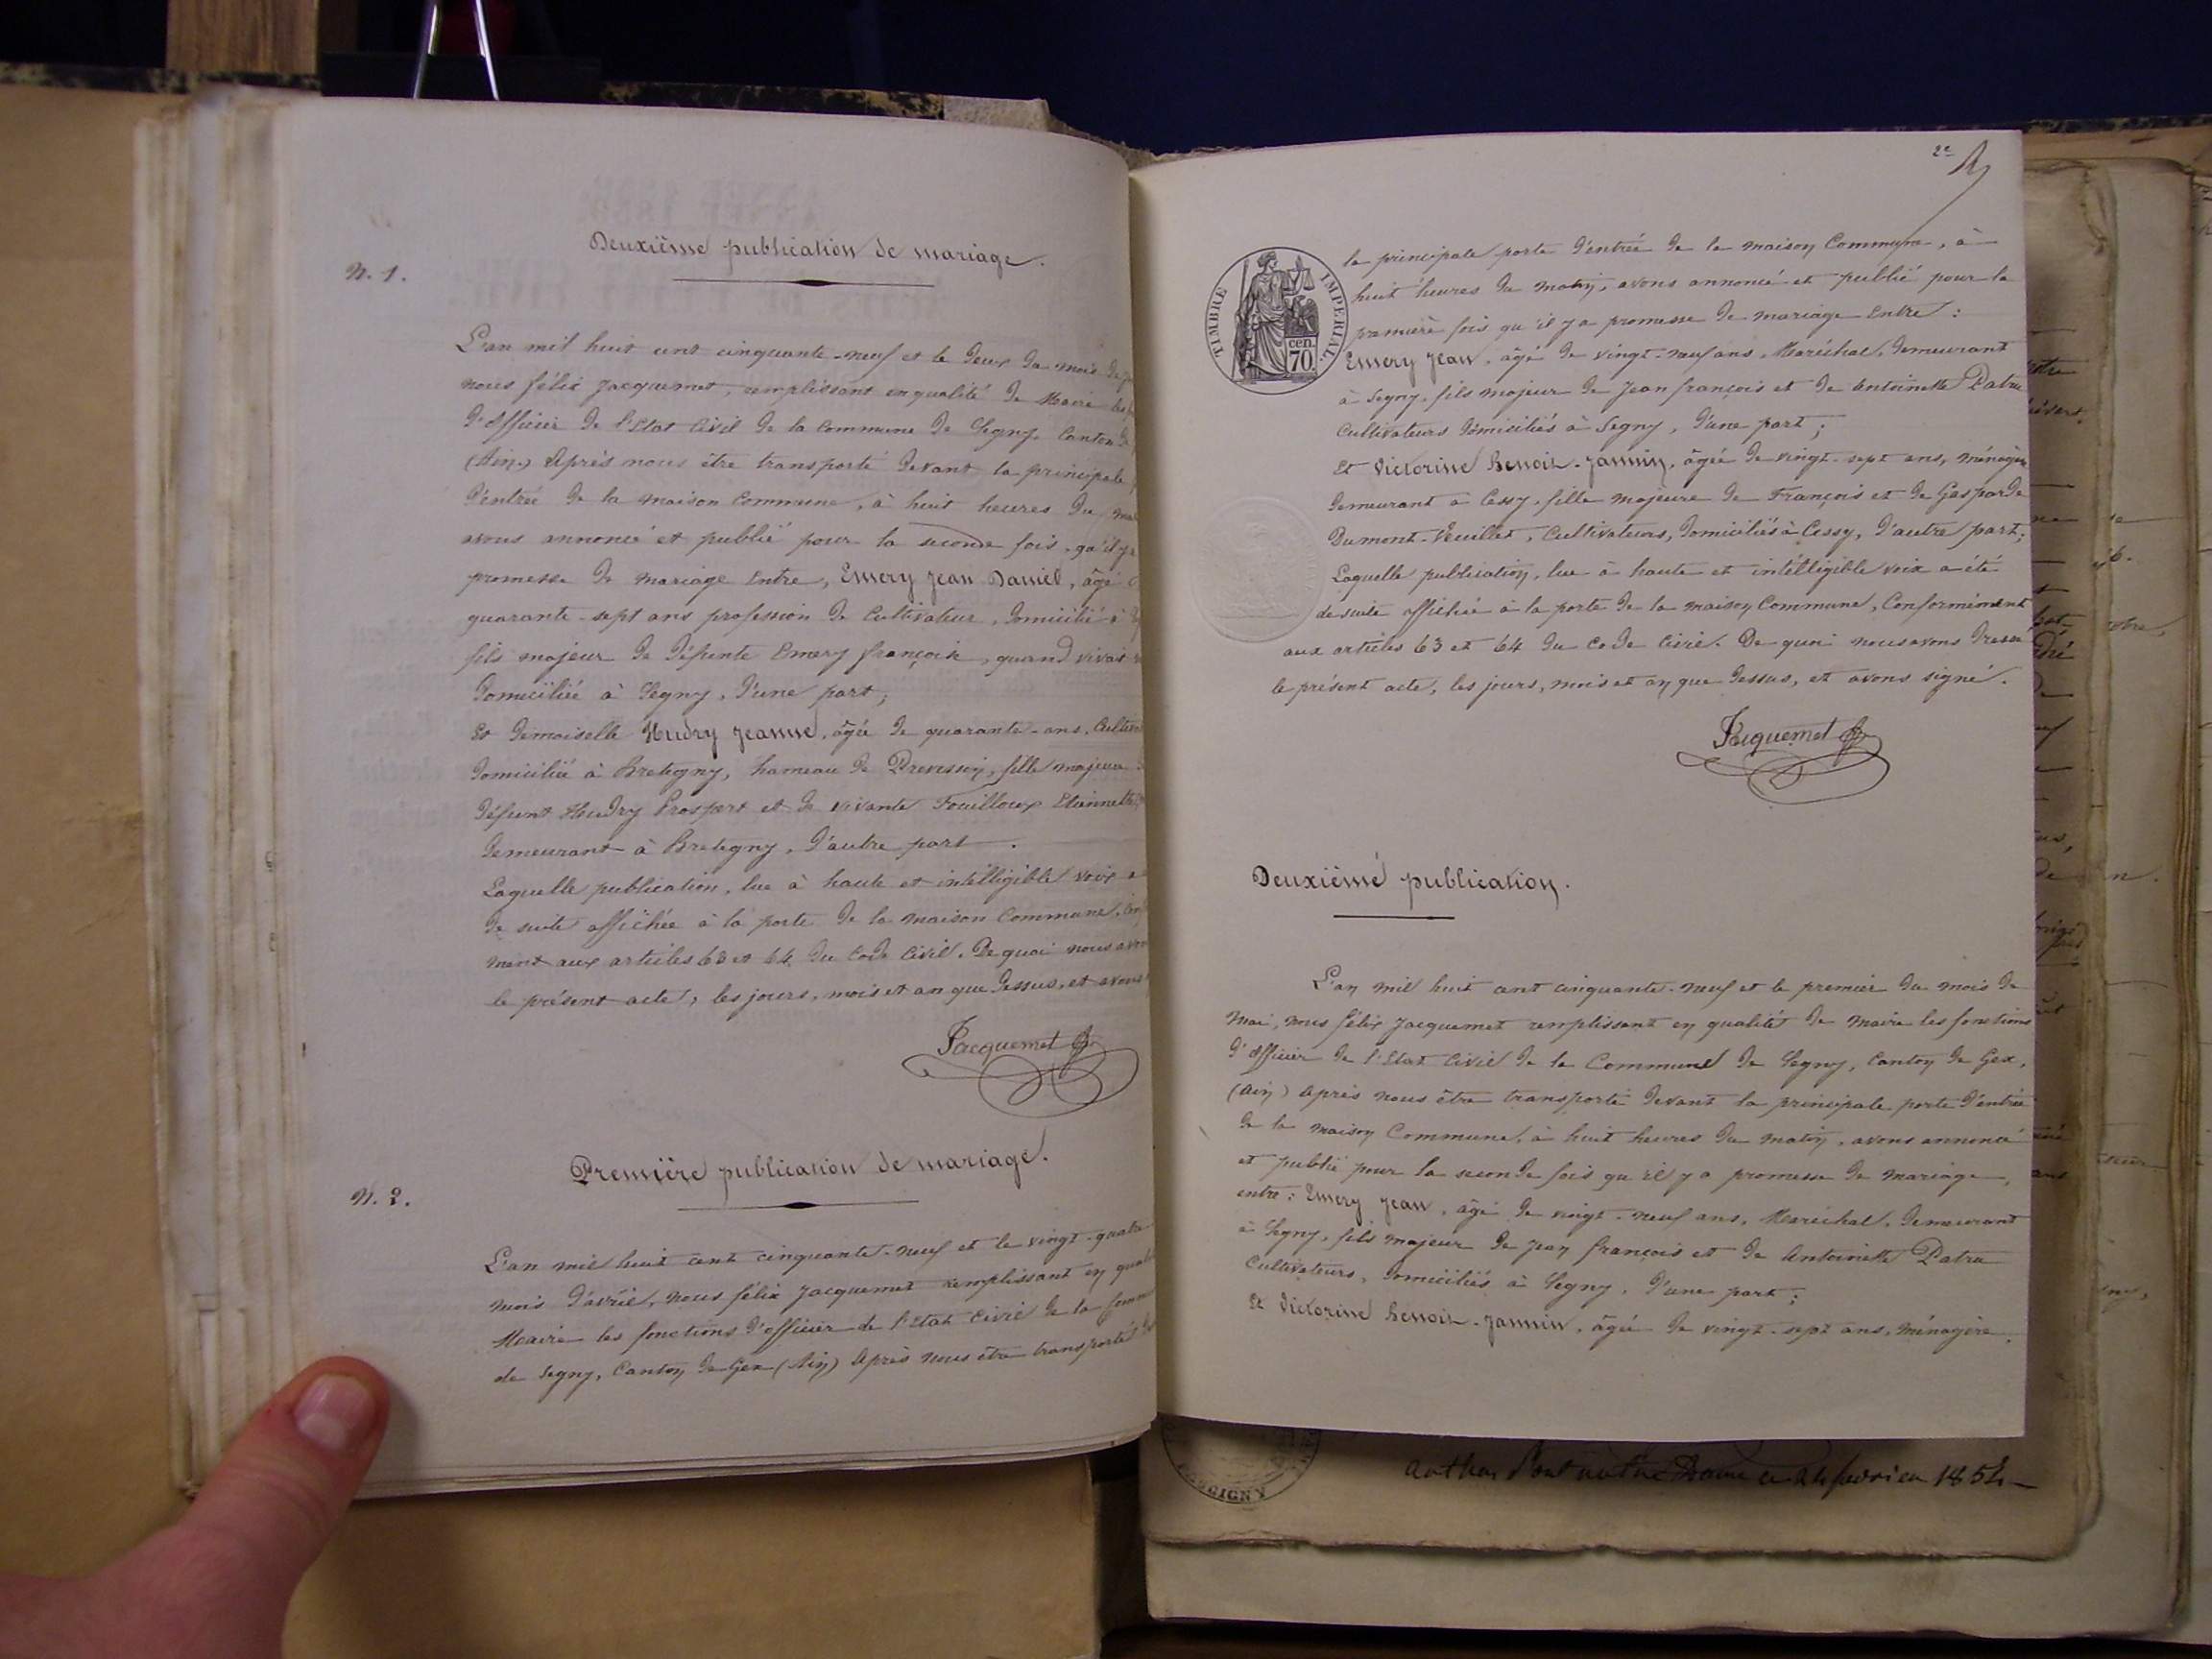 Deuxième publication de mariage.
N. 1.
L'an mil huit cent cinquante-neuf et le deux du mois de
nous félix Jacquemet, remplissant en qualité de Maire les
d'officier de l'Etat Civil de la Commune de Segny, Canton de
(Ain) Après nous être transporté devant la principale
d'entrée de la maison Commune, à huit heures du
avons annoncé et publié pour la seconde fois, qu'il y a
promesse de mariage Entre, Emery Jean Daniel, âgé
quarante-sept ans profession de Cultivateur, domicilié à
fils majeur de défunte Emery françoise, quand vivait
domiciliée à Segny, d'une part;
Et demoiselle Hudry Jeanne, âgée de quarante-ans,
domiciliée à Bretigny, hameau de Prevessin, fille majeure
défunt Hudry Prospert et de vivante Fouilloux Etiennette
demeurant à Bretigny, d'autre part.
Laquelle publication, lue à haute et intélligible voix a
de suite affichée à la porte de la maison Commune,
ment aux articles 63 et 64 du Code Civil. De quoi nous avons
le présent acte, les jours, mois et an que dessus, et avons
Jacquemet
Première publication de mariage.
N. 2.
L'an mil huit cent cinquante-neuf et le vingt-quatre
mois d'avril, nous félix Jacquemet remplissant en qualité
Maire les fonctions d'officier de l'Etat Civil de la
de Segny, Canton de Gex (Ain) Après nous être transporté
2e
la principale porte d'entrée de la maison Commune, à
huit heures du matin, avons annoncé et publié pour la
première fois qu'il y a promesse de mariage Entre :
Emery Jean, âgé de vingt-neuf ans, Maréchal, demeurant
à Segny, fils majeur de Jean françois et de Antoinette Patru
Cultivateurs domiciliés à Segny, d'une part;
Et Victorine Benoit-Jannin, âgée de vingt-sept ans, ménagère
demeurant à Cessy, fille majeure de François et de Gasparde
Dumont-Veuillet, Cultivateurs, domiciliés à Cessy, d'autre part;
Laquelle publication, lue à haute et intélligible voix a été
de suite affichée à la porte de la maison Commune, Conformément
aux articles 63 et 64 du Code Civil. De quoi nous avons dressé
le présent acte, les jours, mois et an que dessus, et avons signé.
TIMBRE IMPERIAL.
70 cen.
Jacquemet
Deuxième publication.
L'an mil huit cent cinquante-neuf et le premier du mois de
mai, nous félix Jacquemet remplissant en qualité de maire les fonctions
d'officier de l'Etat Civil de la Commune de Segny, Canton de Gex,
(Ain) Après nous être transporté devant la principale porte d'entrée
de la maison Commune, à huit heures du matin, avons annoncé
et publié pour la seconde fois qu'il y a promesse de mariage,
entre : Emery Jean, âgé de vingt-neuf ans, Maréchal, demeurant
à Segny, fils majeur de Jean françois et de Antoinette Patru
Cultivateurs, domiciliés à Segny, d'une part;
Et Victorine Benoit-Jannin, âgée de vingt-sept ans, ménagère